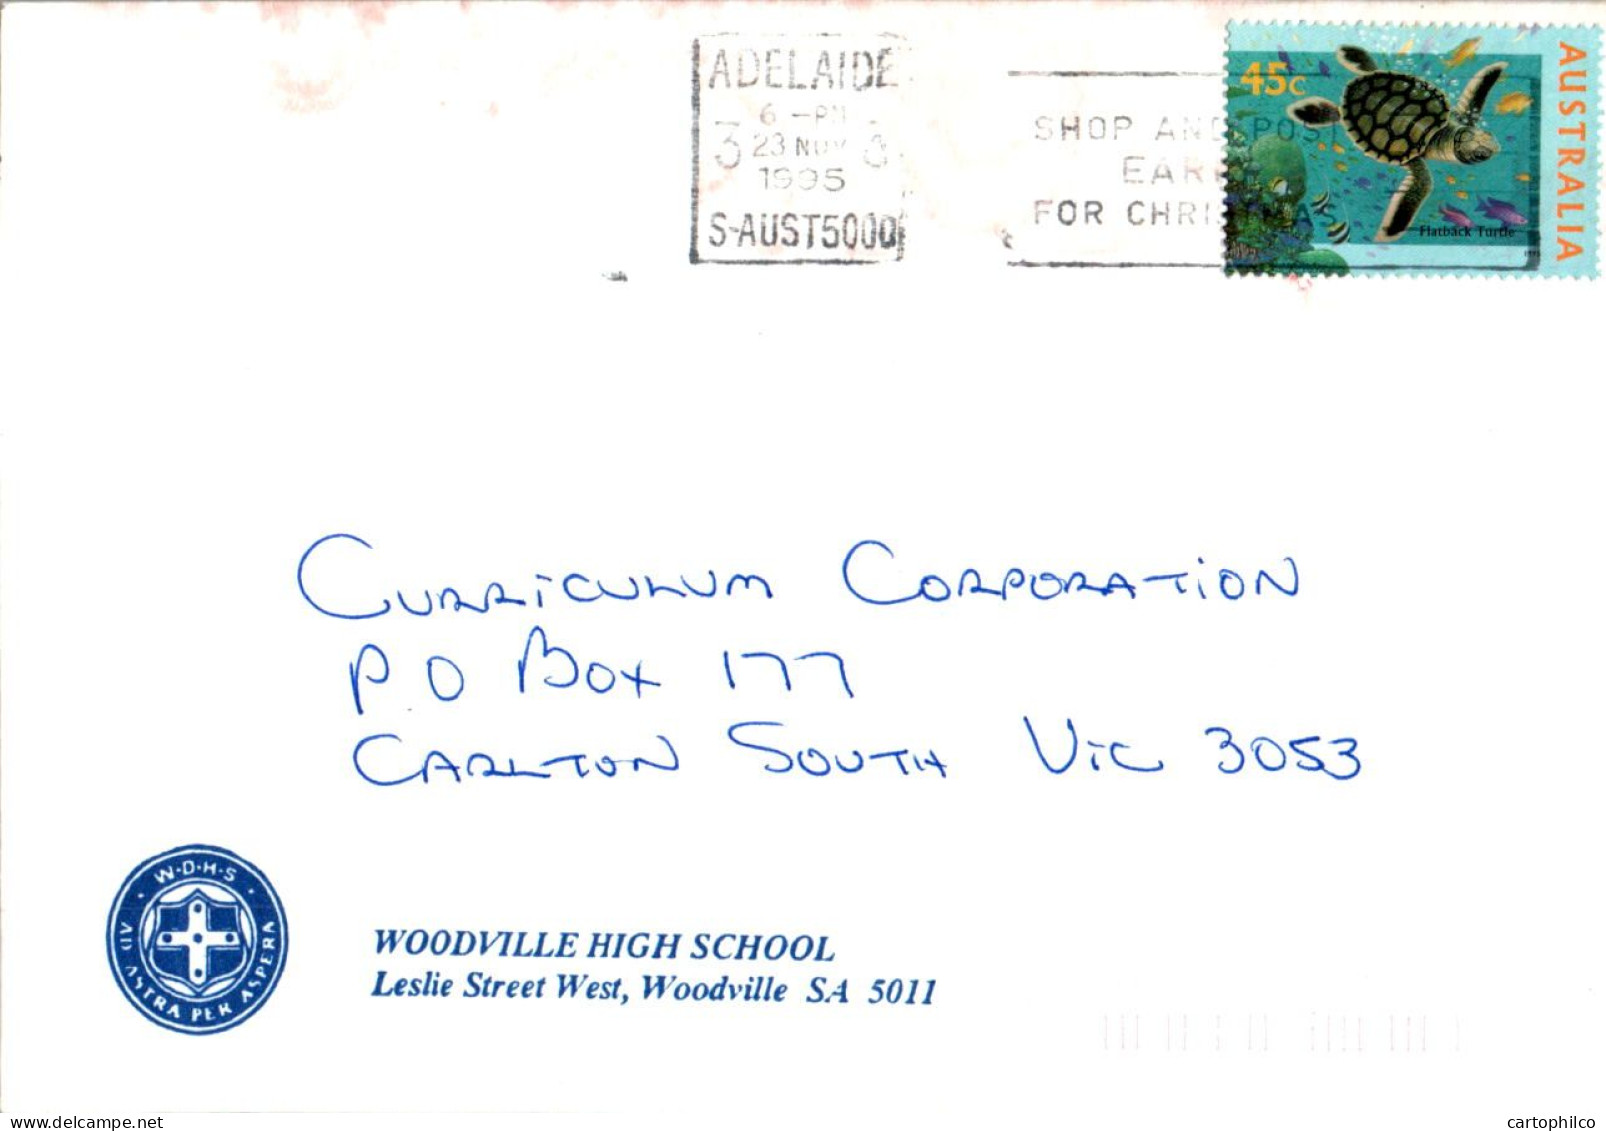 ADELAIDE
6 -PM
3 23 NOV 3
1995
S-AUST5000
SHOP AND POST
EARLY
FOR CHRISTMAS
45c
AUSTRALIA
Flatback Turtle
CURRICULUM CORPORATION
P O BOX 177
CARLTON SOUTH VIC 3053
W·D·H·S
AD ASTRA PER ASPERA
WOODVILLE HIGH SCHOOL
Leslie Street West, Woodville SA 5011
cartophilco